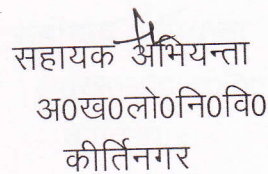 सहायक अभियन्ता
अ0ख0लो0नि0वि0
कीर्तिनगर